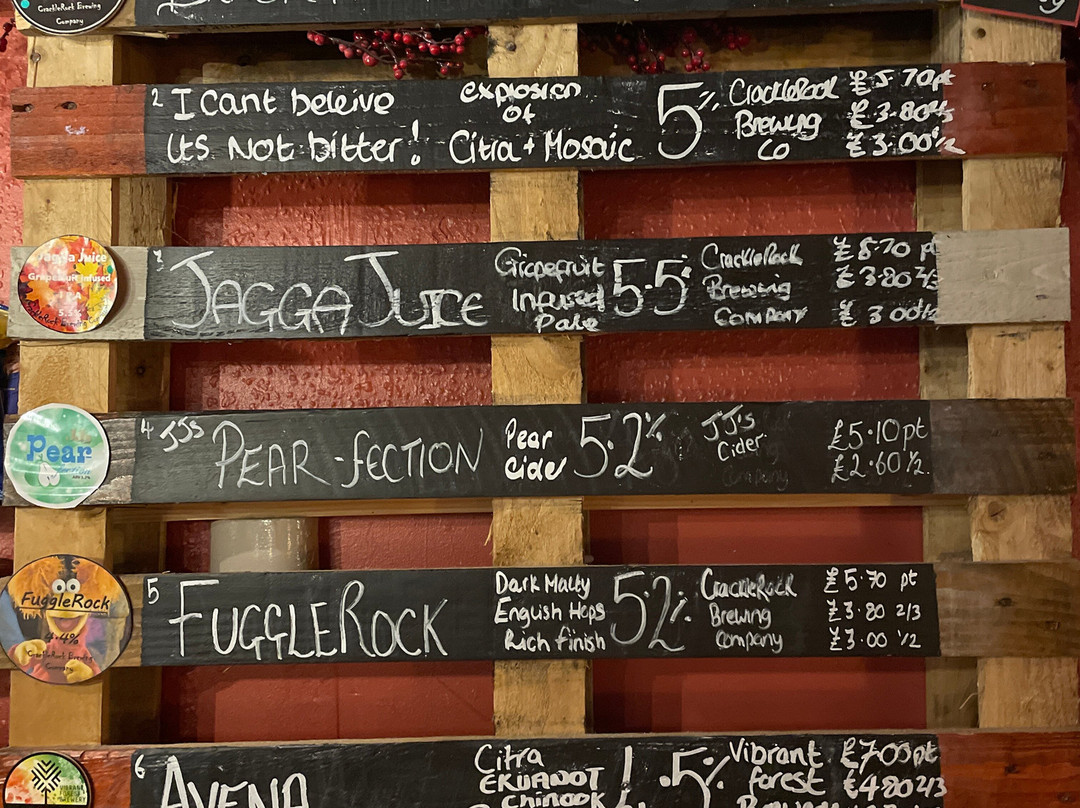 CrackleRock Brewing
Company
2 I Cant beleive
its Not bitter!
explosion
of
Citra + Mosaic
5%
CrackleRock
Brewing
Co
£5.70pt
£3.80⅔
£3.00½
Jagga Juice
Grapefruit Infused
5.5%
CrackleRock Brewing
3 JAGGA JUICE
Grapefruit
Infused
Pale
5.5%
CrackleRock
Brewing
Company
£5.70 pt
£3.80 2/3
£3.00 ½
Pear
4 JJs PEAR-fECTION
Pear
Cider
5.2%
JJ's
Cider
Company
£5.10pt
£2.60 ½.
FuggleRock
4.4%
CrackleRock Brewing
Company
5 FUGGLEROCK
Dark Malty
English Hops
Rich finish
5.2%.
CrackleRock
Brewing
Company
£5.70 pt
£3.80 2/3
£3.00 ½
VIBRANT
FOREST
BREWERY
6 AVENA
Citra
EKUANOT
Chinook
.5%
Vibrant
forest
£7.00pt
£4.80 2/3